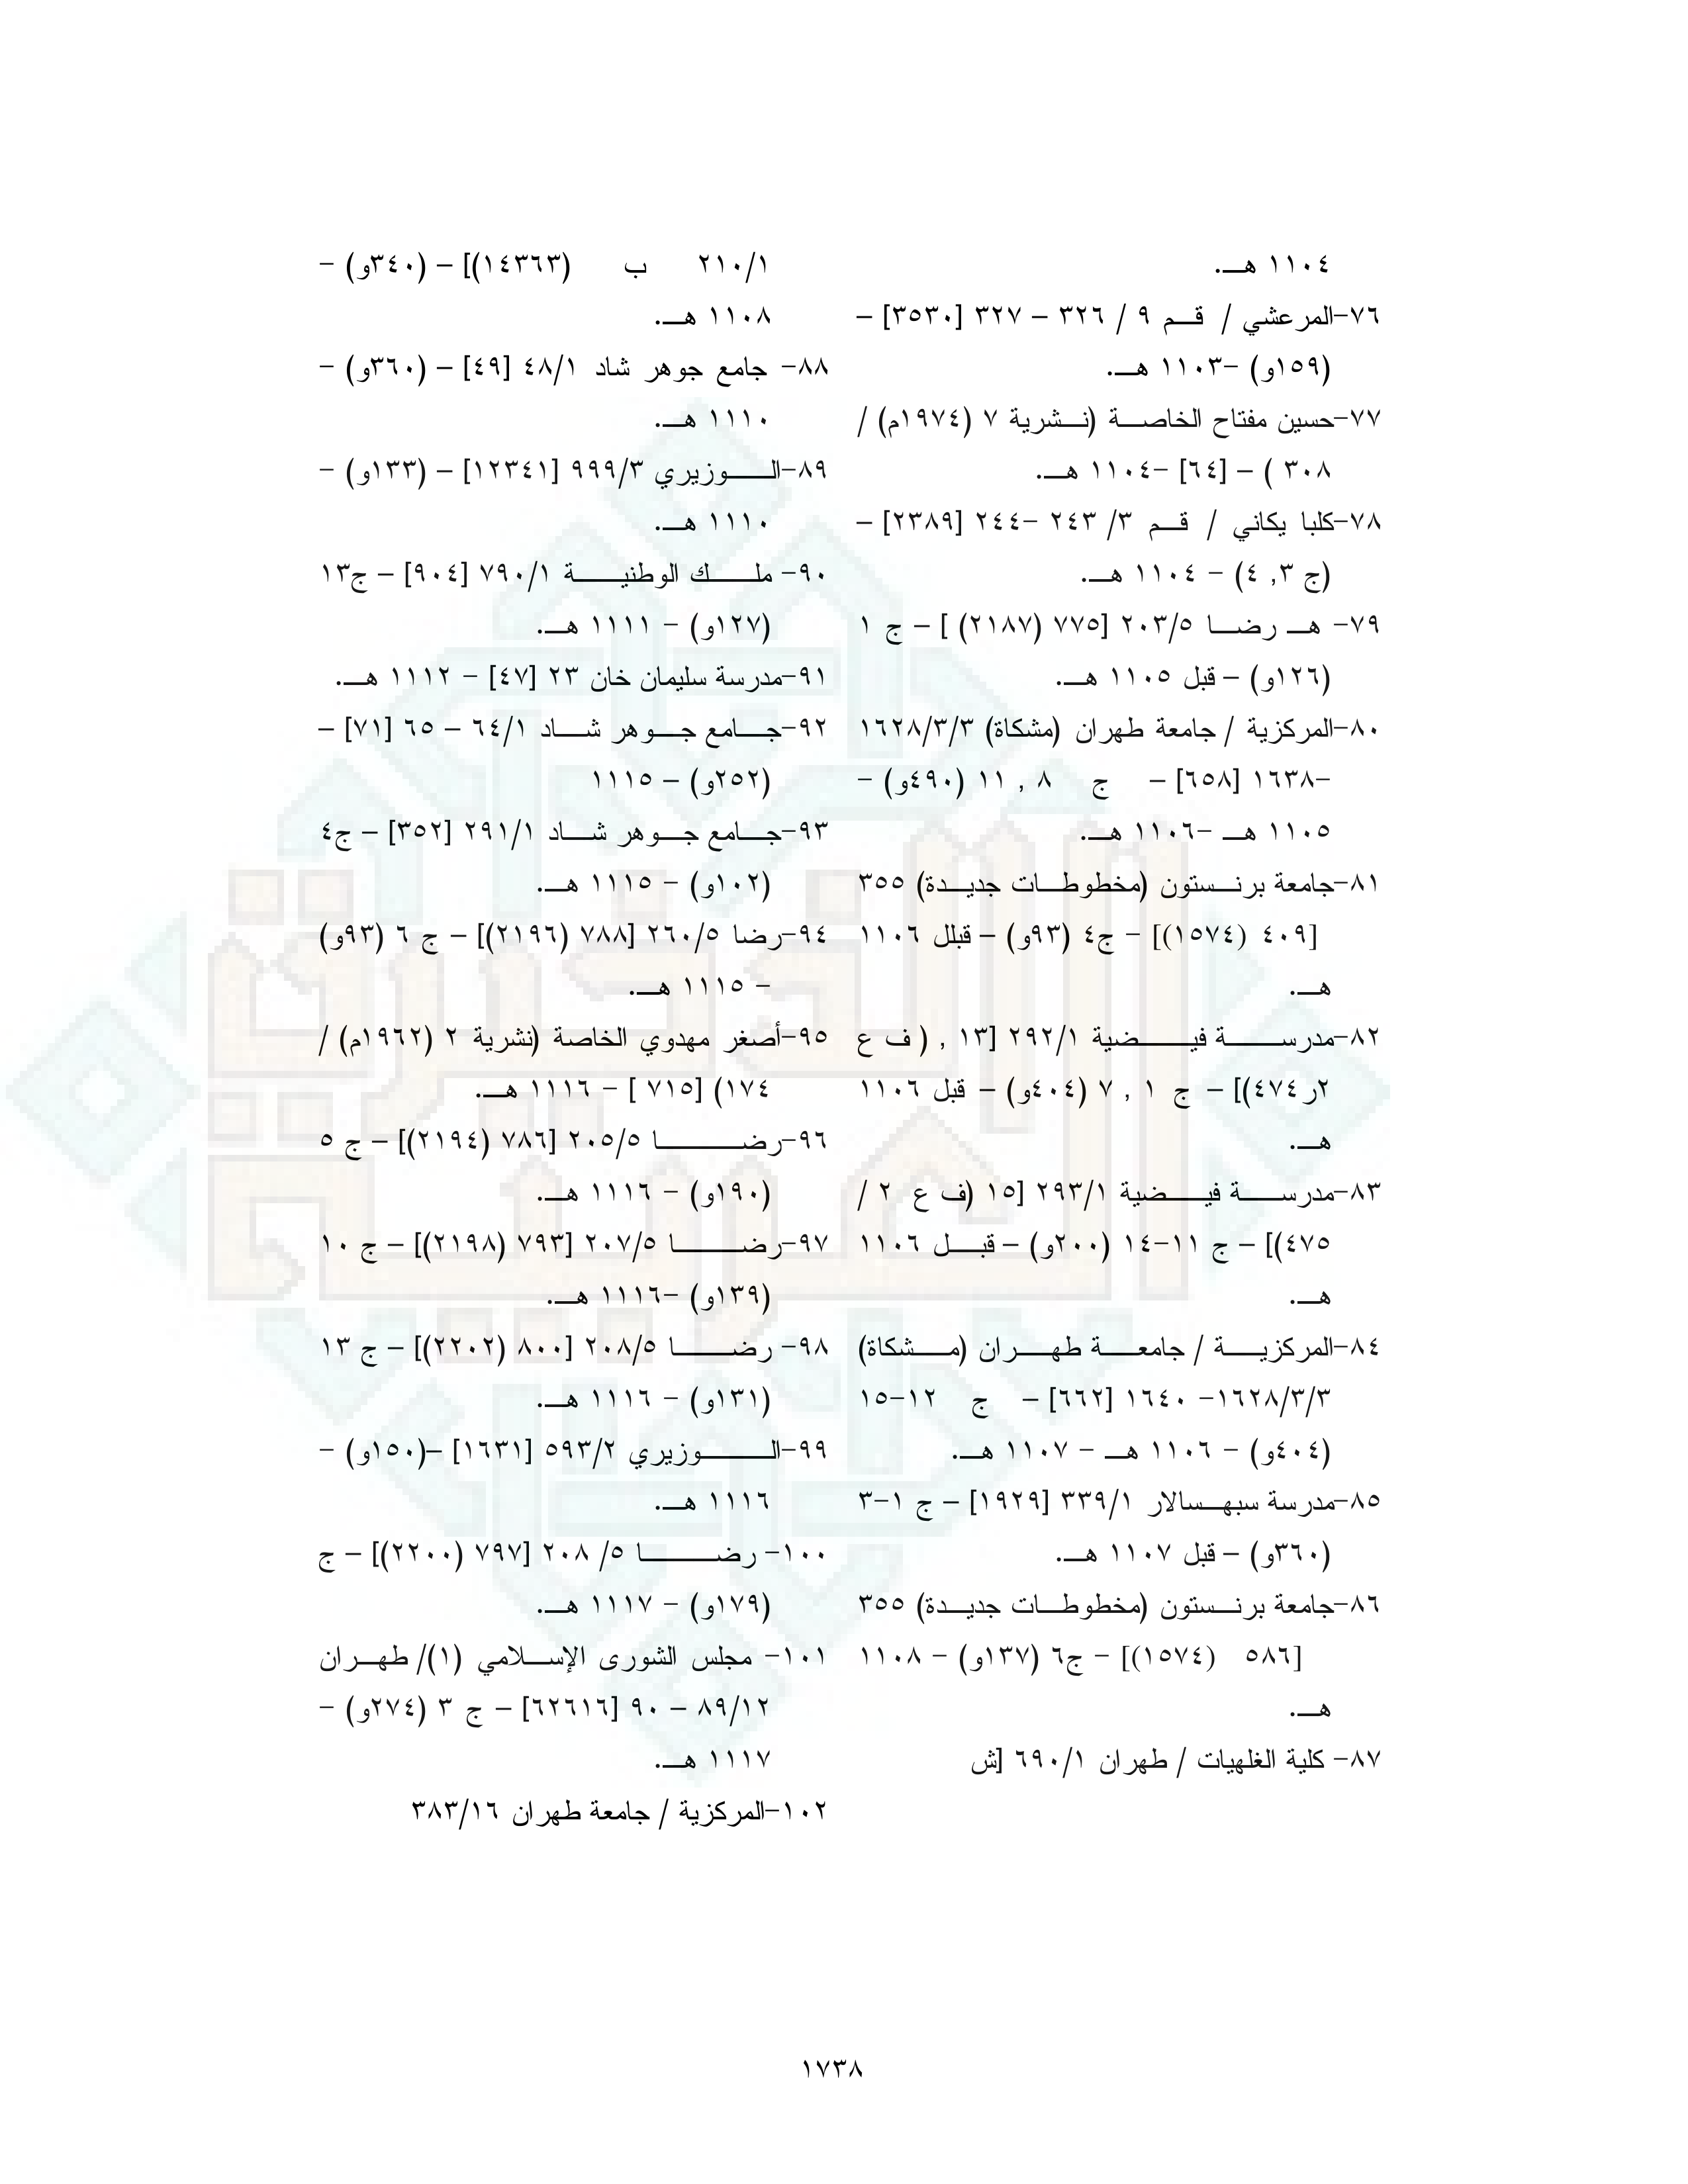 ١١٠٤ هـ.
٧٦-المرعشي / قم ٩ / ٣٢٦ – ٣٢٧ [٣٥٣٠] –
(١٥٩و) -١١٠٣ هـ.
٧٧-حسين مفتاح الخاصة (نشرية ٧ (١٩٧٤م) /
٣٠٨ ) – [٦٤] -١١٠٤ هـ.
٧٨-كلبا يكاني / قم ٣/ ٢٤٣ -٢٤٤ [٢٣٨٩] –
(ج ٣, ٤) - ١١٠٤ هـ.
٧٩- هـ رضا ٢٠٣/٥ [٧٧٥ (٢١٨٧) ] – ج ١
(١٢٦و) – قبل ١١٠٥ هـ.
٨٠-المركزية / جامعة طهران (مشكاة) ١٦٢٨/٣/٣
-١٦٣٨ [٦٥٨] – ج ٨ , ١١ (٤٩٠و) -
١١٠٥ هـ -١١٠٦ هـ.
٨١-جامعة برنستون (مخطوطات جديدة) ٣٥٥
[٤٠٩ (١٥٧٤)] - ج٤ (٩٣و) – قبلل ١١٠٦
هـ.
٨٢-مدرسة فيضية ٢٩٢/١ [١٣ , ( ف ع
٢ر٤٧٤)] – ج ١ , ٧ (٤٠٤و) – قبل ١١٠٦
هـ.
٨٣-مدرسة فيضية ٢٩٣/١ [١٥ (ف ع ٢ /
٤٧٥)] – ج ١١-١٤ (٢٠٠و) – قبل ١١٠٦
هـ.
٨٤-المركزية / جامعة طهران (مشكاة)
١٦٢٨/٣/٣- ١٦٤٠ [٦٦٢] – ج ١٢-١٥
(٤٠٤و) - ١١٠٦ هـ - ١١٠٧ هـ.
٨٥-مدرسة سبهسالار ٣٣٩/١ [١٩٢٩] – ج ١-٣
(٣٦٠و) – قبل ١١٠٧ هـ.
٨٦-جامعة برنستون (مخطوطات جديدة) ٣٥٥
[٥٨٦ (١٥٧٤)] - ج٦ (١٣٧و) - ١١٠٨
هـ.
٨٧- كلية الغلهيات / طهران ٦٩٠/١ [ش
٢١٠/١ ب (١٤٣٦٣)] – (٣٤٠و) -
١١٠٨ هـ.
٨٨- جامع جوهر شاد ٤٨/١ [٤٩] – (٣٦٠و) -
١١١٠ هـ.
٨٩-الوزيري ٩٩٩/٣ [١٢٣٤١] – (١٣٣و) -
١١١٠ هـ.
٩٠- ملك الوطنية ٧٩٠/١ [٩٠٤] – ج١٣
(١٢٧و) - ١١١١ هـ.
٩١-مدرسة سليمان خان ٢٣ [٤٧] - ١١١٢ هـ.
٩٢-جامع جوهر شاد ٦٤/١ – ٦٥ [٧١] –
(٢٥٢و) – ١١١٥
٩٣-جامع جوهر شاد ٢٩١/١ [٣٥٢] – ج٤
(١٠٢و) - ١١١٥ هـ.
٩٤-رضا ٢٦٠/٥ [٧٨٨ (٢١٩٦)] – ج ٦ (٩٣و)
- ١١١٥ هـ.
٩٥-أصغر مهدوي الخاصة (نشرية ٢ (١٩٦٢م) /
١٧٤) [٧١٥ ] - ١١١٦ هـ.
٩٦-رضا ٢٠٥/٥ [٧٨٦ (٢١٩٤)] – ج ٥
(١٩٠و) - ١١١٦ هـ.
٩٧-رضا ٢٠٧/٥ [٧٩٣ (٢١٩٨)] – ج ١٠
(١٣٩و) -١١١٦ هـ.
٩٨- رضا ٢٠٨/٥ [٨٠٠ (٢٢٠٢)] – ج ١٣
(١٣١و) - ١١١٦ هـ.
٩٩-الوزيري ٥٩٣/٢ [١٦٣١] –(١٥٠و) -
١١١٦ هـ.
١٠٠- رضا ٥/ ٢٠٨ [٧٩٧ (٢٢٠٠)] – ج
(١٧٩و) - ١١١٧ هـ.
١٠١- مجلس الشورى الإسلامي (١)/ طهران
٨٩/١٢ – ٩٠ [٦٢٦١٦] – ج ٣ (٢٧٤و) -
١١١٧ هـ.
١٠٢-المركزية / جامعة طهران ٣٨٣/١٦
١٧٣٨